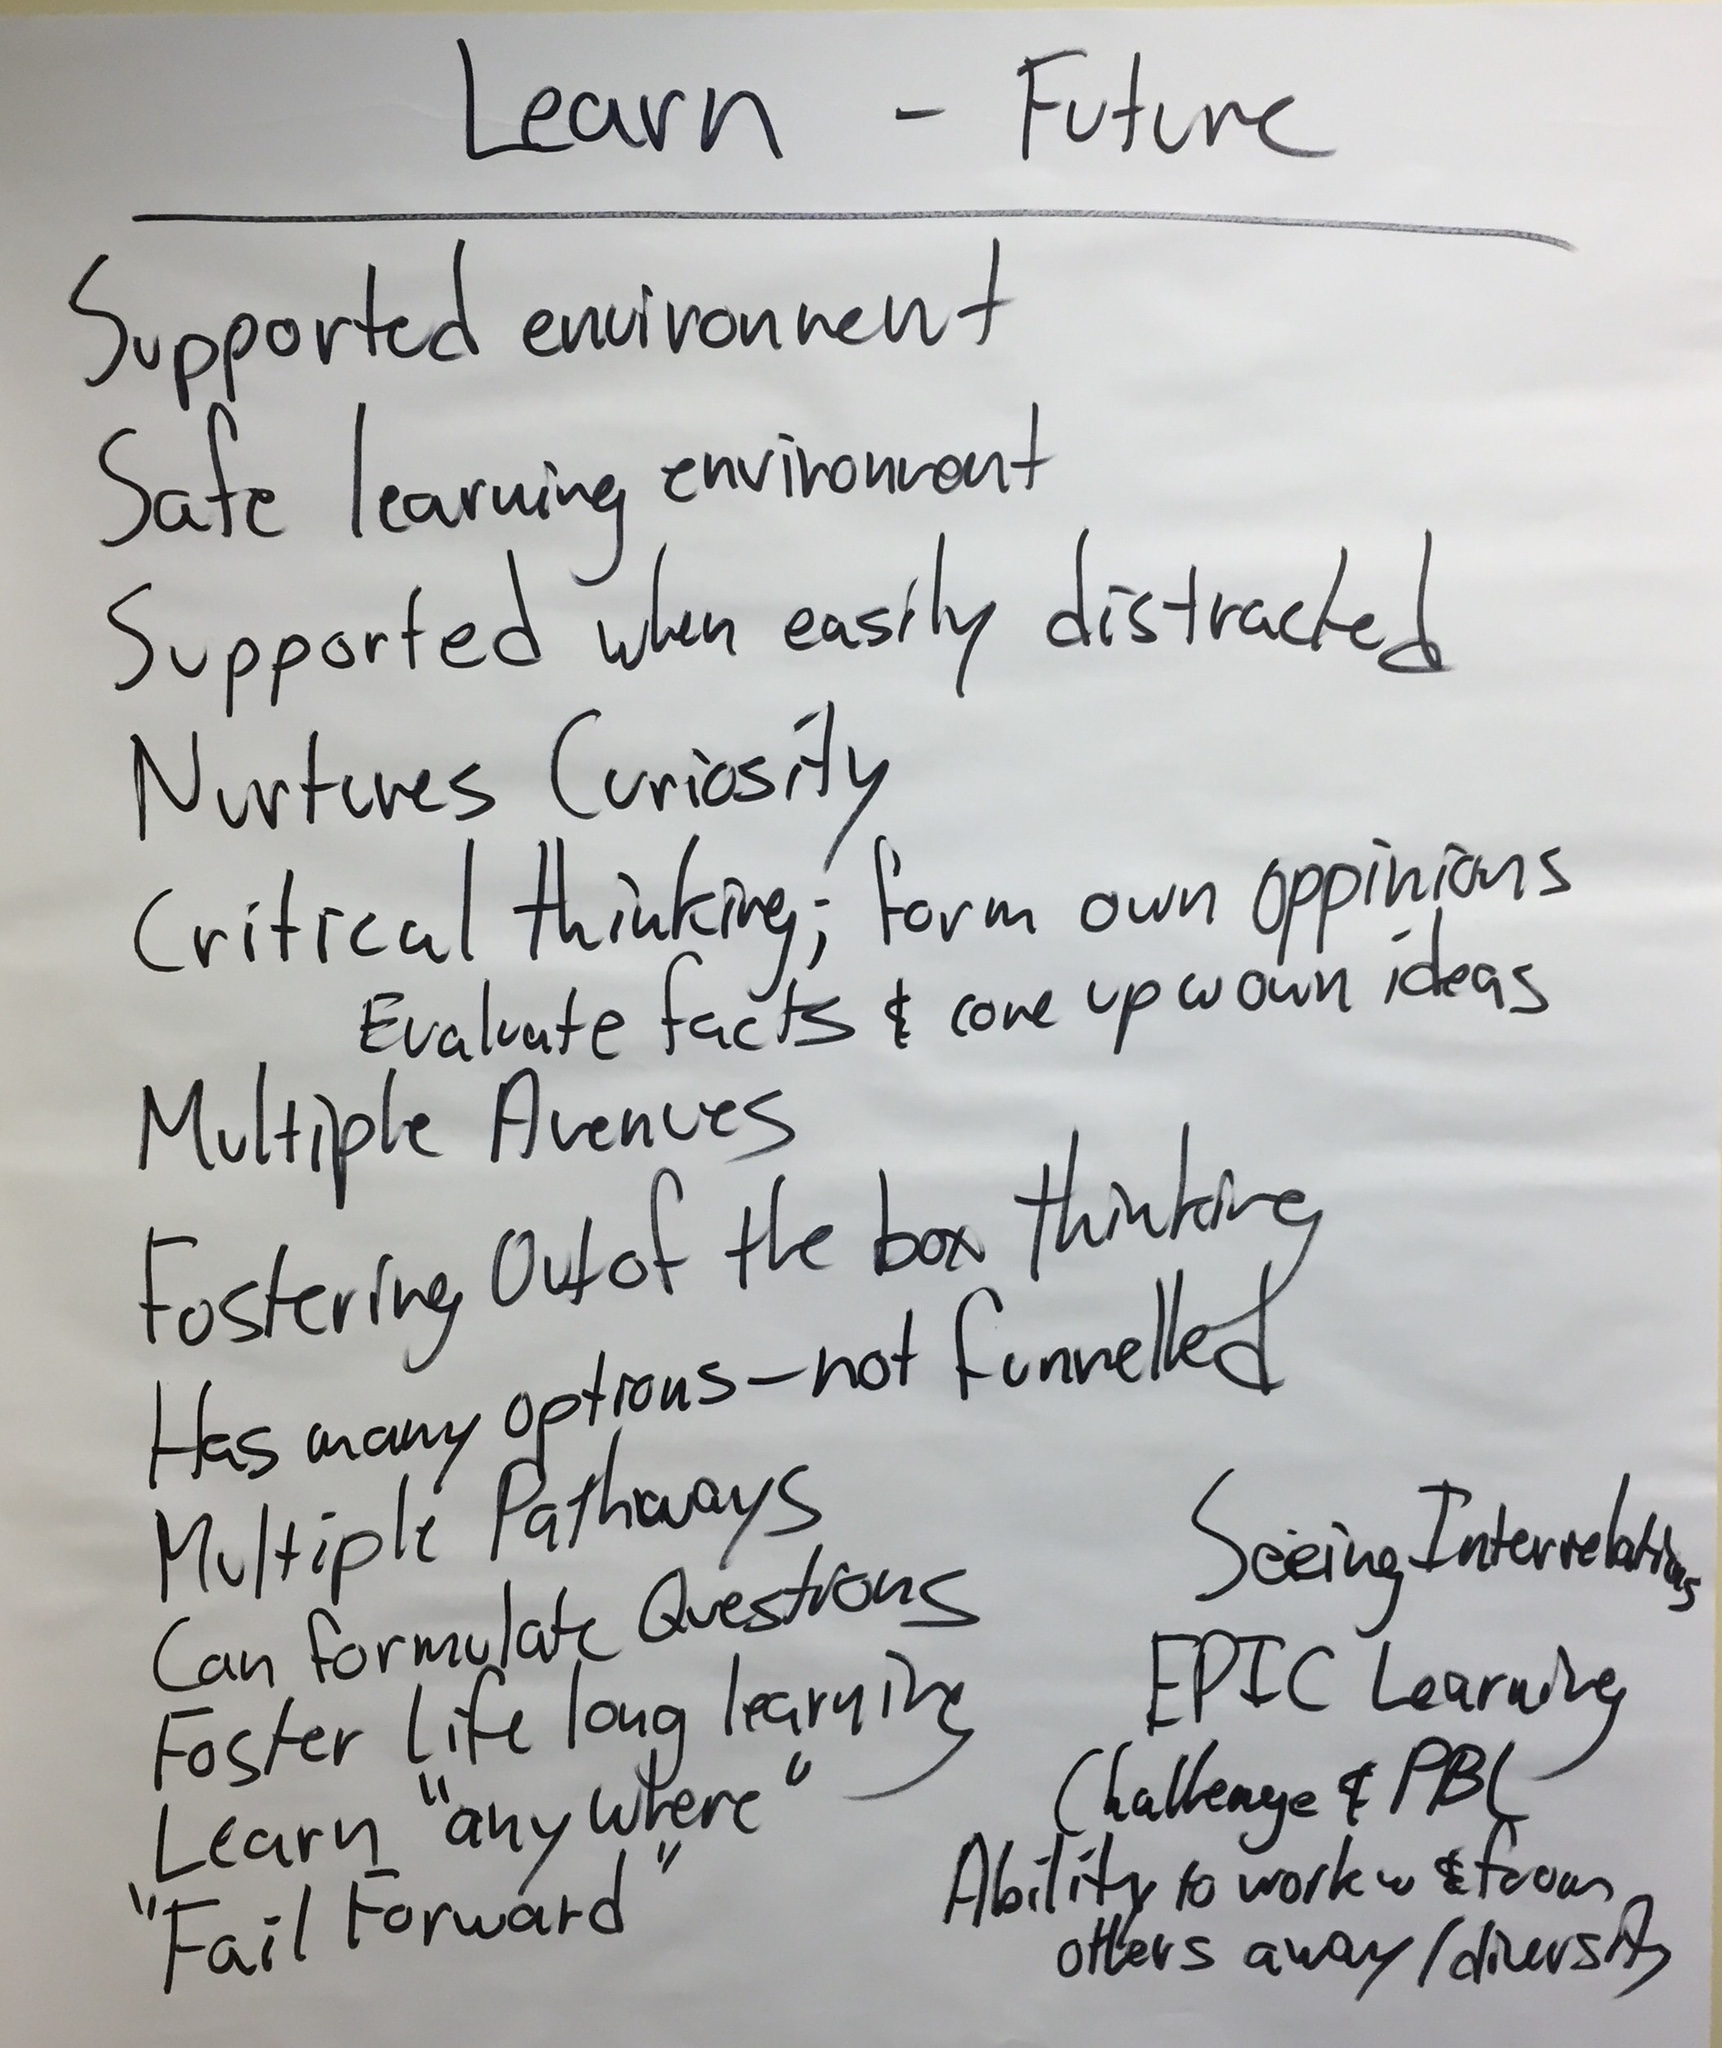 Learn - Future
Supported environment
Safe learning environment
Supported when easily distracted
Nurtures Curiosity
Critical thinking; form own oppinions
Evaluate facts & come up w own ideas
Multiple Avenues
Fostering Out of the box thinking
Has many options - not funnelled
Multiple Pathways
Can formulate Questions
Foster Life long learning
Learn "anywhere"
"Fail Forward"
Seeing Interrelations
EPIC Learning
Challenge & PBL
Ability to work w & from
others away/diversity